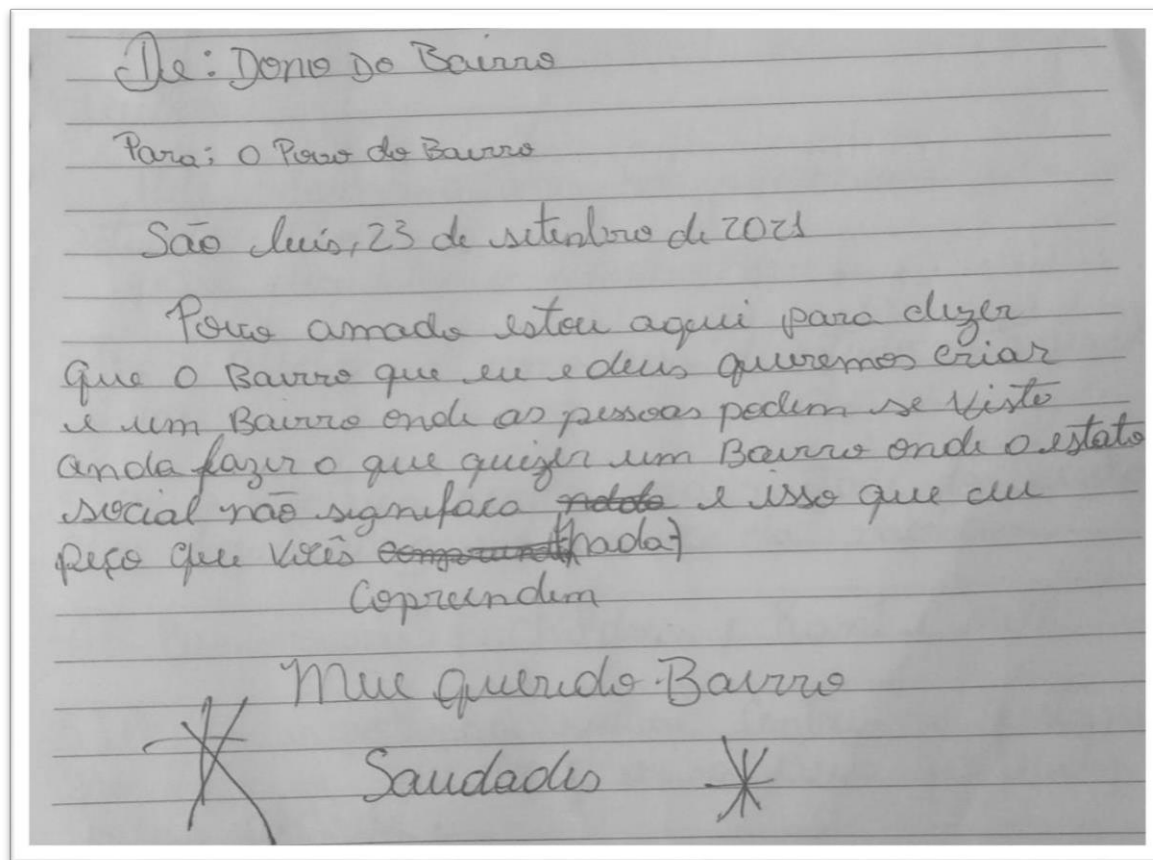 De: Dono Do Bairro
Para: O Povo do Bairro
São luís, 23 de setenbro de 2021
Povo amado estou aqui para dizer
que o Bairro que eu e deus queremos criar
e um Bairro onde as pessoas podem se visto
anda fazer o que quizer um Bairro onde o estato
social não signifaca e isso que eu
peço que vocês (nada)
Copreendem
Meu querido Bairro
Saudades